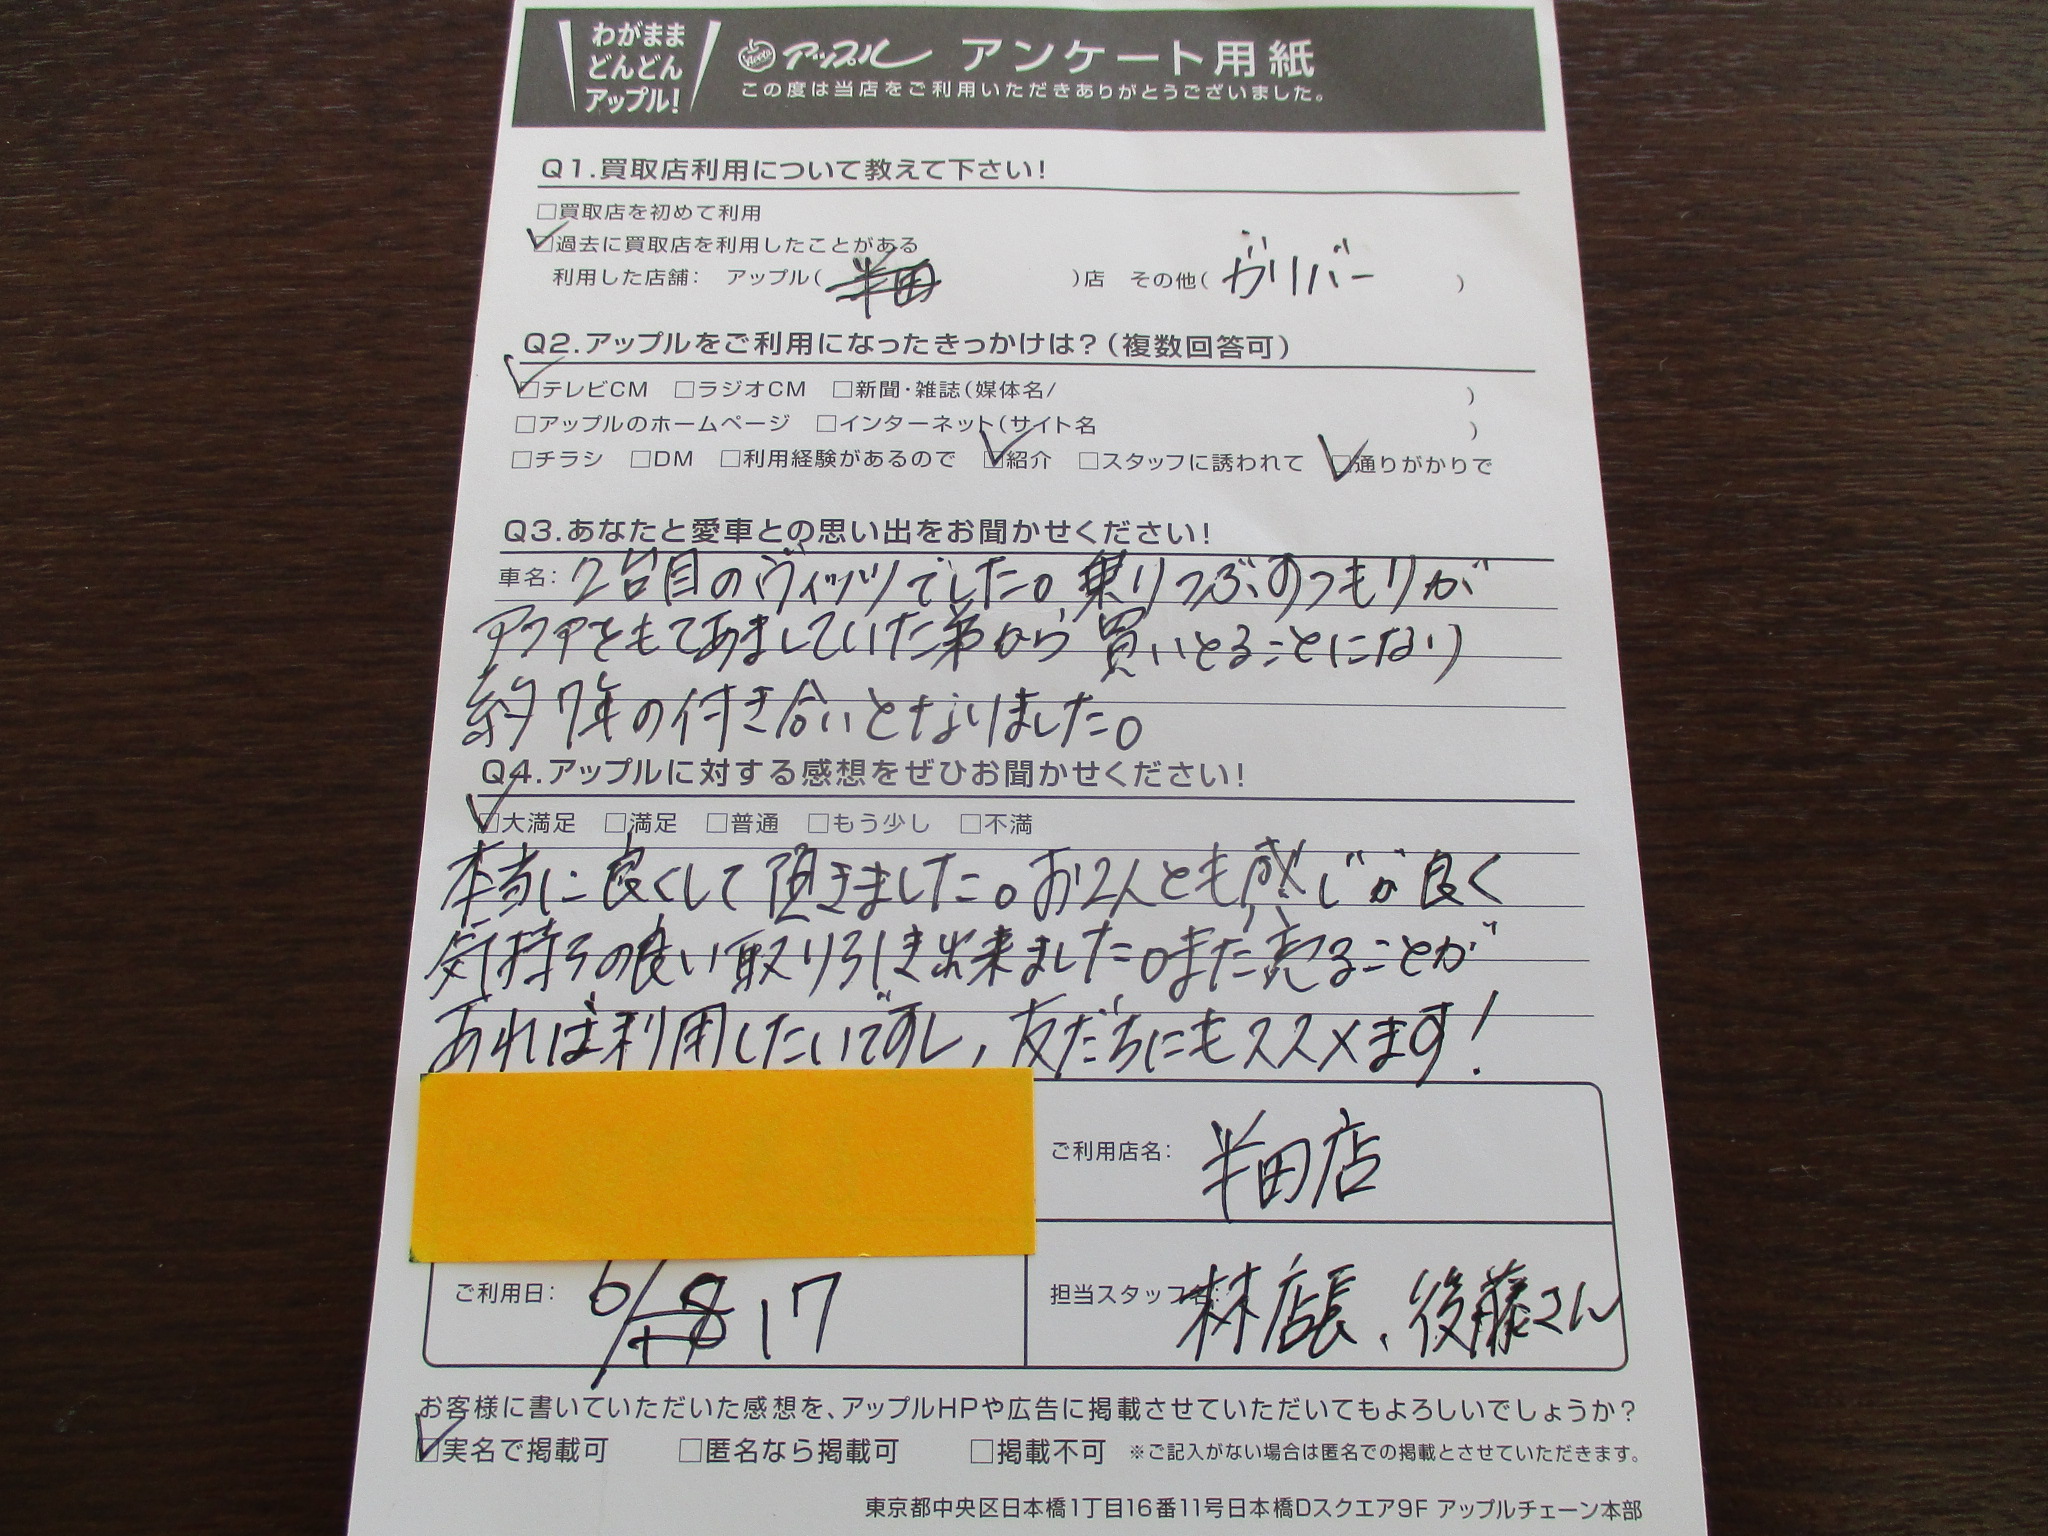 わがまま
どんどん
アップル!
アップル アンケート用紙
この度は当店をご利用いただきありがとうございました。
Q1.買取店利用について教えて下さい!
□買取店を初めて利用
☑過去に買取店を利用したことがある
利用した店舗: アップル( 半田 )店 その他( ガリバー )
Q2.アップルをご利用になったきっかけは?(複数回答可)
☑テレビCM □ラジオCM □新聞・雑誌(媒体名/ )
□アップルのホームページ □インターネット(サイト名 )
□チラシ □DM □利用経験があるので ☑紹介 □スタッフに誘われて ☑通りがかりで
Q3.あなたと愛車との思い出をお聞かせください!
車名: 2台目のヴィッツでした。乗りつぶすつもりが
アクアをもてあましていた弟から買いとることになり
約7年の付き合いとなりました。
Q4.アップルに対する感想をぜひお聞かせください!
☑大満足 □満足 □普通 □もう少し □不満
本当に良くして頂きました。お2人とも感じが良く
気持ちの良い取り引き出来ました。また売ることが
あれば利用したいですし、友だちにもススメます!
ご利用店名: 半田店
ご利用日: 6/ 17
担当スタッフ名: 林店長、後藤さん
お客様に書いていただいた感想を、アップルHPや広告に掲載させていただいてもよろしいでしょうか?
☑実名で掲載可 □匿名なら掲載可 □掲載不可 ※ご記入がない場合は匿名での掲載とさせていただきます。
東京都中央区日本橋1丁目16番11号日本橋Dスクエア9F アップルチェーン本部